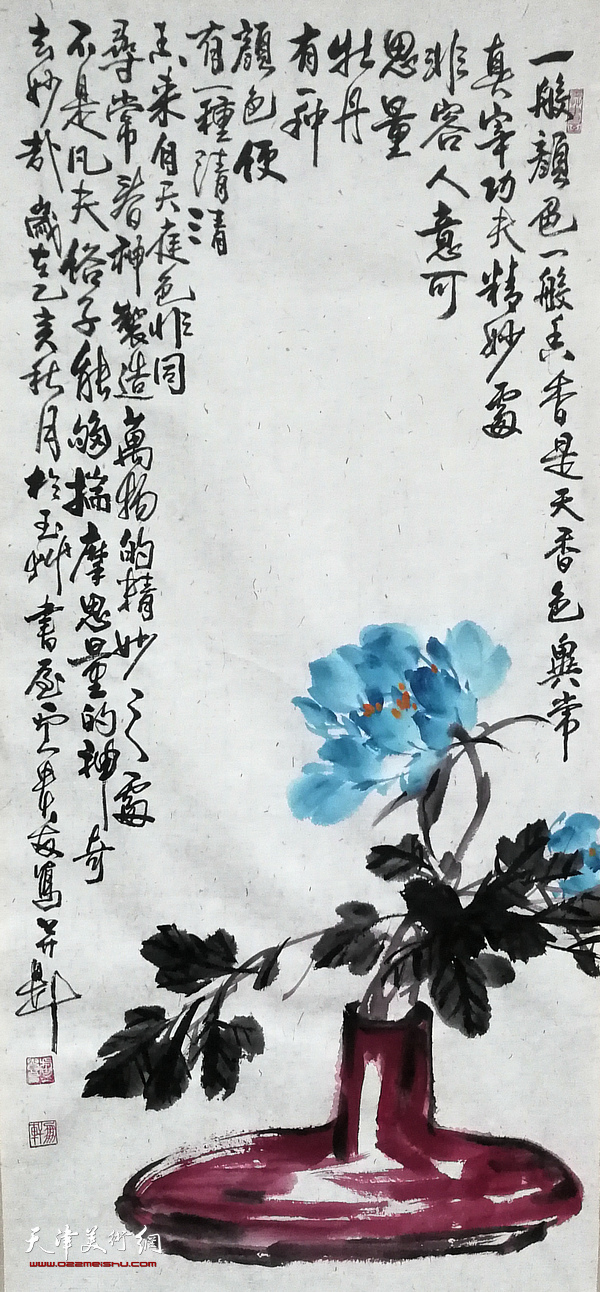 一般颜色一般香香是天香色異常
真宰功夫精妙處
非容人意可
思量
牡丹
有一种
颜色便
有一種清清
香来自天庭色非同
尋常着神製造萬物的精妙之處
不是凡夫俗子能够揣摩思量的神奇
去妙哉歲在乙亥秋月於玉州書屋贾貴友寫并
天津美術網
www.022meishu.com